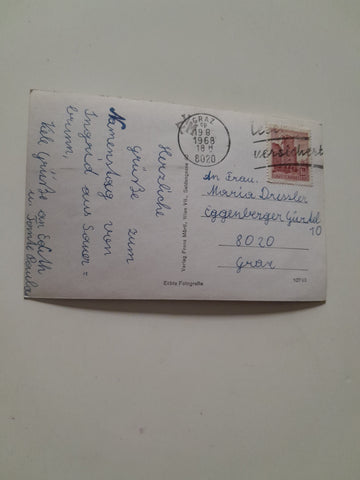 Herzliche
Grüße zum
Namenstag von
Ingrid aus Sauer =
brunn,
Viele Grüße an Edith
u. Tante Paula
Verlag Franz Mörtl, Wien VII.,
Echte Fotografie
GRAZ
19 8
1968
18 H
8020
versichert
An Frau.
Maria Dressler
Eggenberger Gürtel
10
8020
Graz